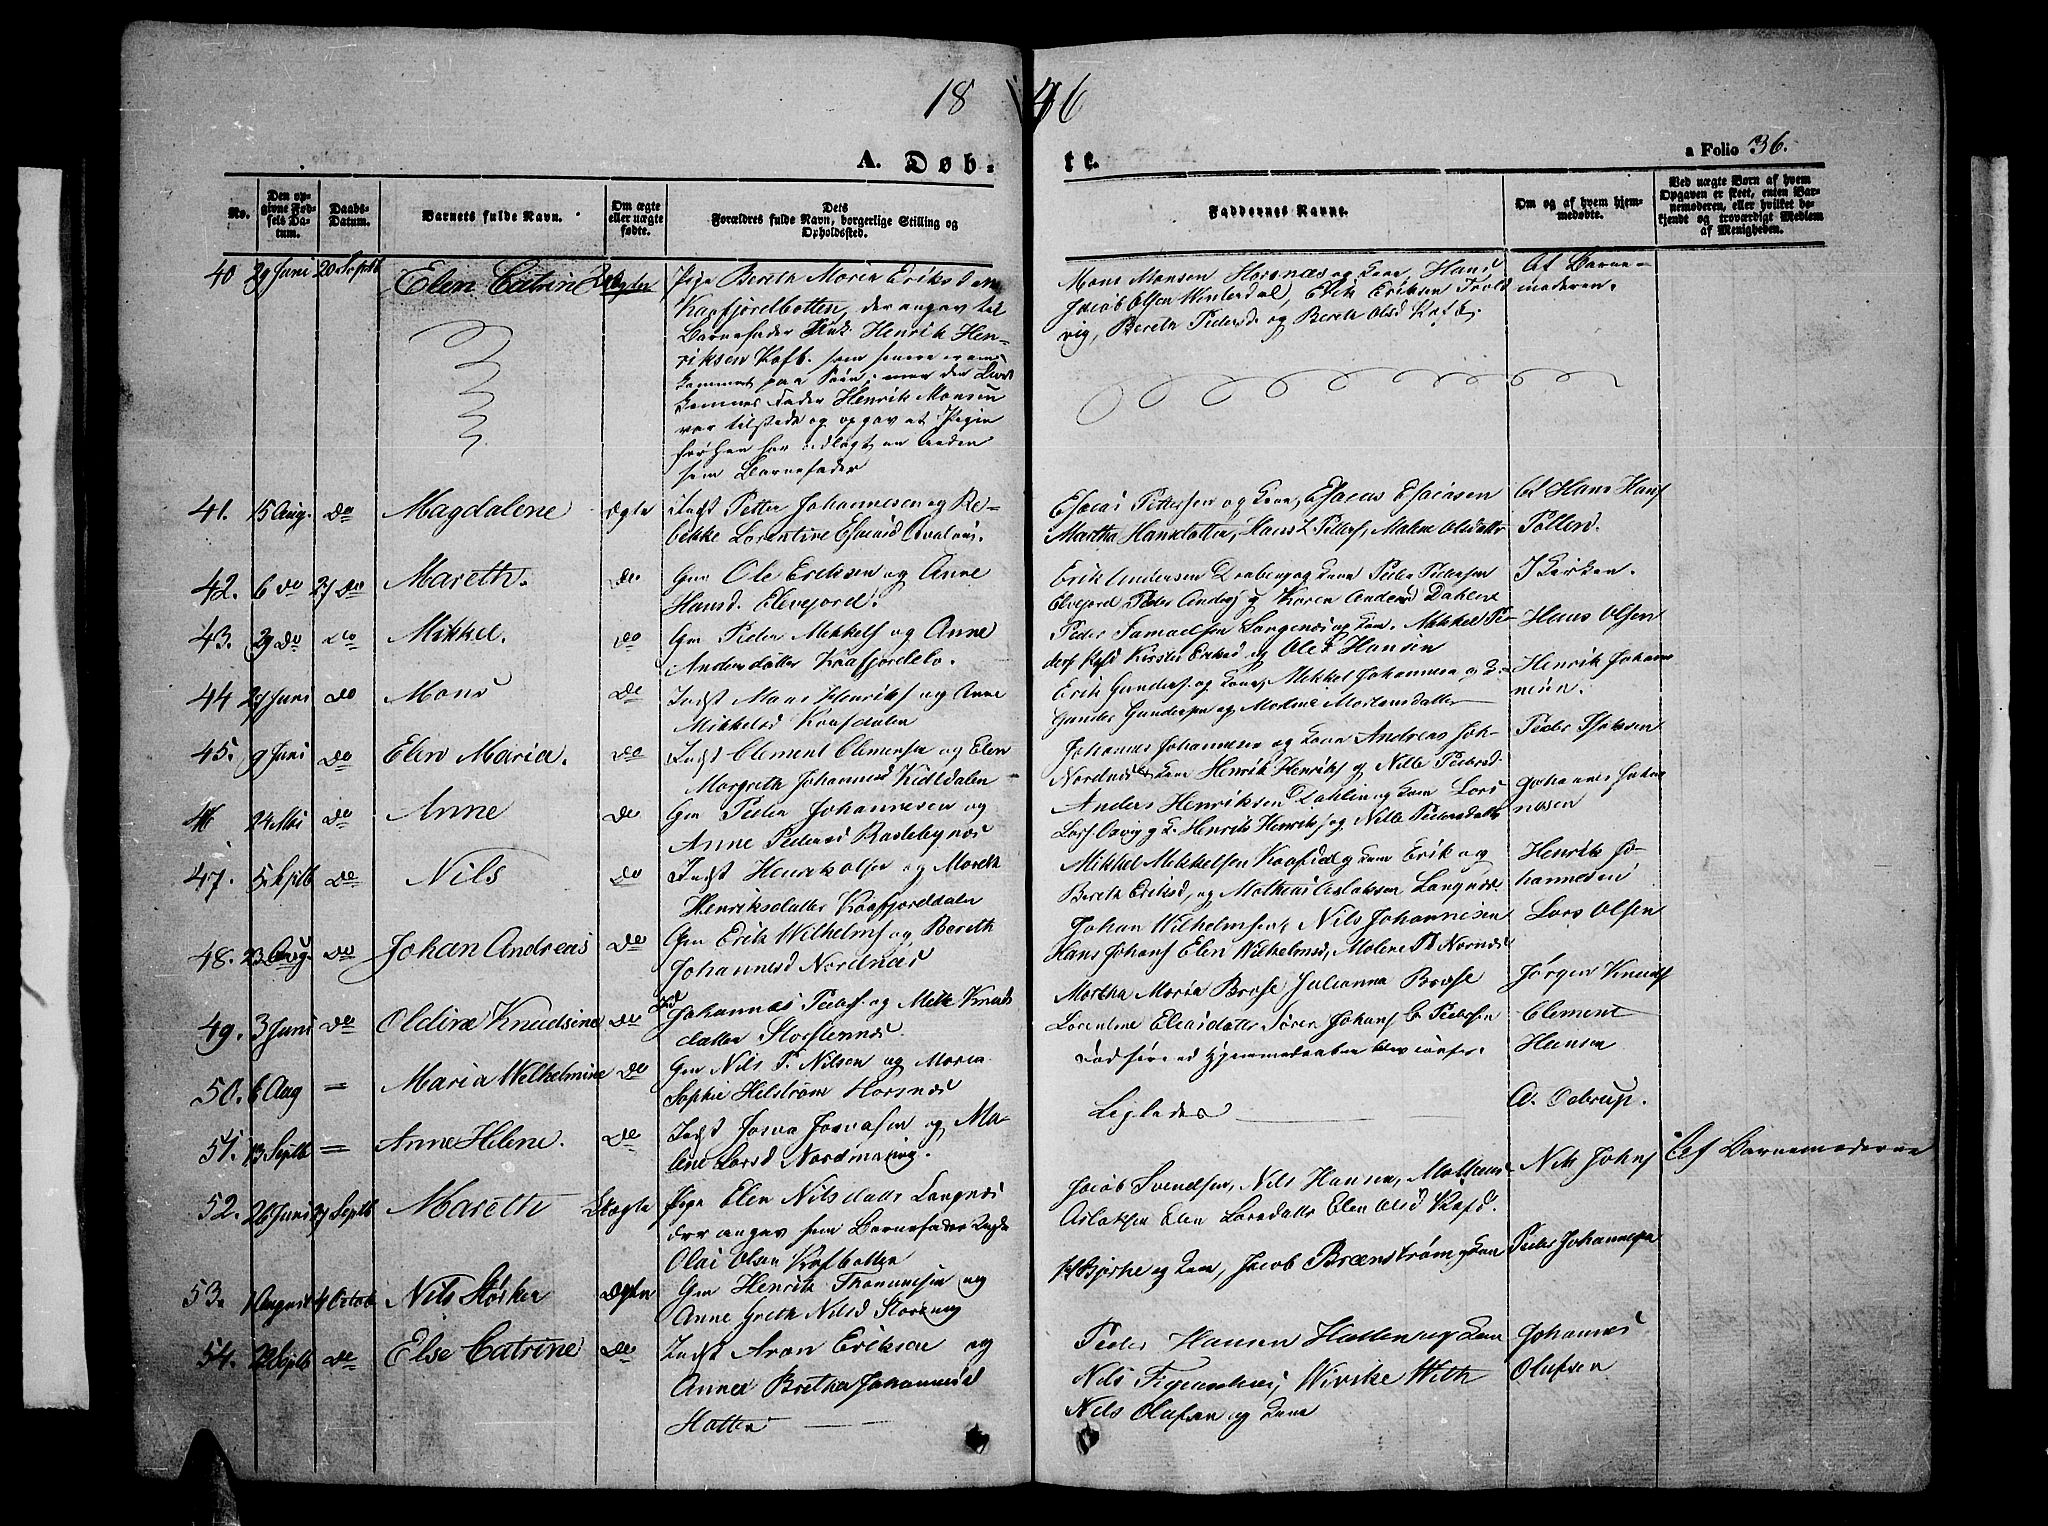 18 46
A. Døb- te.
a Folio 36.
No.
Den op-
givne Fød-
sels Da-
tum.
Daabs-
Datum.
Barnets fulde Navn.
Om ægte
eller uægte
fødte.
Dets
Forældres fulde Navn, borgerlige Stilling og
Opholdssted.
Faddernes Navne.
Om og af hvem hjem-
medøbte.
Ved uægte Børn af hvem
Opgaven er skeet, enten Bar-
nemoderen, eller hvilket be-
kjendt og troværdigt Medlem
af Menigheden.
40 29 Juni 20 Septb Elen Catrine Uægte Pige Bereth Maria Eriksd
Kaafjordbotten, der angav til
Barnefader Henrik Hen-
riksen Kafb. som senere
paa
Fader Henrik Monsen
var tilstede og opgav at Pigen
forhen har udlagt en anden
som Barnefader
Mons Monsen Horsnæs og Kone, Hans
Jacob Olsen Winterdal, Erik Eriksen Trold
vig, Bereth Pedersd og Bereth Olsd
Af Barne-
moderen.
41. 15 Aug. do Magdalene Ægte Indst Petter Johannesen og Re-
bekke Lorentine
Esaias Pettersen og Kone, Esaias Esaiasen
Martha Hansdatter, Hans Peders, Malene Olsdatter
Af Hans Hans
Pollen.
42. 6 do 27 do Mareth. do Gm Ole Eriksen og Anne
Hansd. Elvejord.
Erik Andersen og Kone Peder Pedersen
Elvejord Peder Anders og Karen Andersd Dahlen
I Kirken.
43. 29 do do Mikkel. do Gm Peder Mekkels og Anne
Andersdatter Kaafjordeb.
Peder Samuelsen Langenæs og Kone. Mikkel Pe-
ders Kafd Kirsten Eriksd og Ole Hansen
Hans Olsen
44 27 Juni do Mons do Indst Mons Henriks og Anne
Mikkelsd Kaafdalen
Erik Gunders. og Kone, Mikkel Johannesen og
Gunder Gundersen og Martine Mortensdatter
Henrik Johann
nesen.
45. 9 Juni do Elen Maria. do Indst Clement Clemensen og Elen
Margreth Johannesd Kidldalen
Johannes Johannesen og Kone Andreas Joh-
Nordnæs og Kone Henrik Henriks og Nille Pedersd
Peder
46 24 Mai do Anne do Gm Peder Johannesen og
Anne Pedersd Rastebynæs
Anders Henriksen Dahlen og Kone Lars
Lars Henrik Henriks og Nille Pedersdatter
Johannes Johan
nesen
47. 5 Septb do Nils do Indst Henrik Olsen og Mareth
Henriksdatter Kaafjorddalen
Mikkel Mikkelsen Kaafjd og Kone Erik og
Bereth Eriksd, og Mathias Aslaksen Langnæs
Henrik Jo-
hannesen
48. 23 Aug. do Johan Andreas do Gm Erik Wilhelms og Bereth
Johannesd Nordnæs
Johan Wilhelmsen, Nils Johannesen
Hans Johans Elen Wilhelmsd, Malene P. Nornæs
Lars Olsen
49. 3 Juni do Oldine Knudsine do Ind Johannes Peders. og Mette Knuds
datter
Martha Maria Brose Julianna Brose
Lorentine Eliasdatter Søren Johans C Pedersen
Jørgen Knuds
50. 6 Aug = Maria Wilhelmine do Gm Nils P. Nilsen og Maria
Sophie Helstrøm Horsnæs
Hjemmedaaben blev
Clement
Hansen
51. 13 Septb = Anne Helene. do Indst Josva Josvasen og Ma-
lene Larsd
Ligledes
A. Dobrup.
52. 26 Juni 27 Septb Mareth Uægte Pige Elen Nilsdatter Langnæs
der angav som Barnefader Ungk
Olai Olsen Kafbotten
Jacob Svendsen, Nils Hansen, Mathias
Aslaksen Elen Larsdatter Elen Olsd Kafd.
Nils Johns
Af Barnemoderen
53. 1 August 4 Octob Nils Høsker Ægte Gm Henrik Thomesen og
Anne Greth Nilsd
Bjerke og Kone, Jacob Brænstrøm og Kone
Peder Johannesen
54. 22 Septb do Else Catrine do Indst Aron Eriksen og
Anne Brethe Johannesd
Hatten
Peder Hansen Hatten og Kone
Nils Wivike With
Nils Olufsen og Kone
Johannes
Olufsen